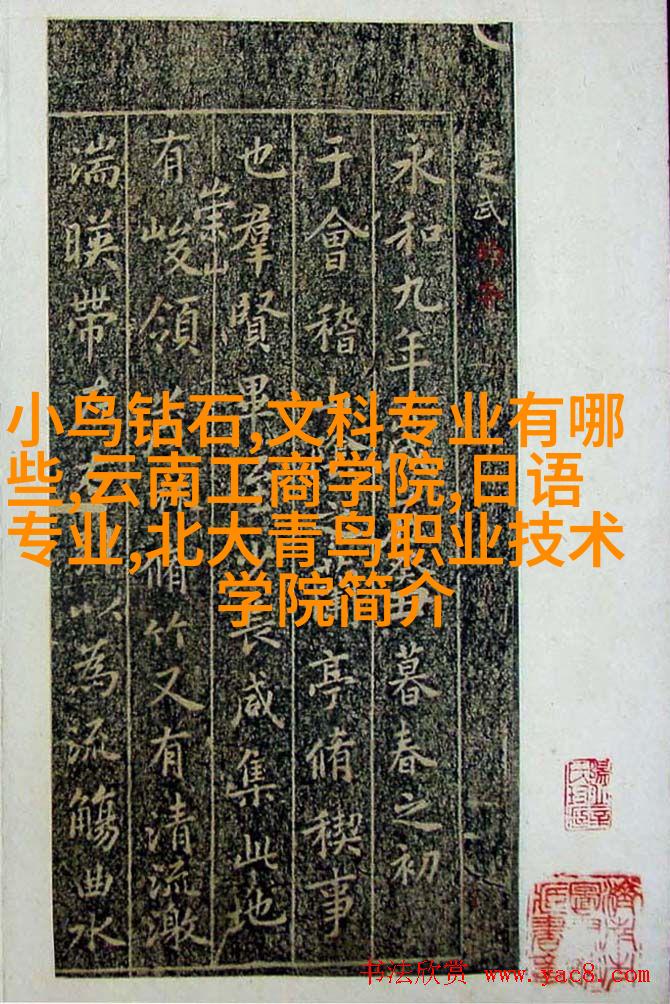 小鸟钻石,文科专业有哪
些,云南工商学院,日语
专业,北大青鸟职业技术
学院简介
定武
永和九年 暮春之初
于會稽 亭脩稧事
也羣賢畢 長咸集此地
有崇山峻領 脩竹又有清流激
湍暎帶 以為流觴曲水
书法欣赏 www.yac8.com